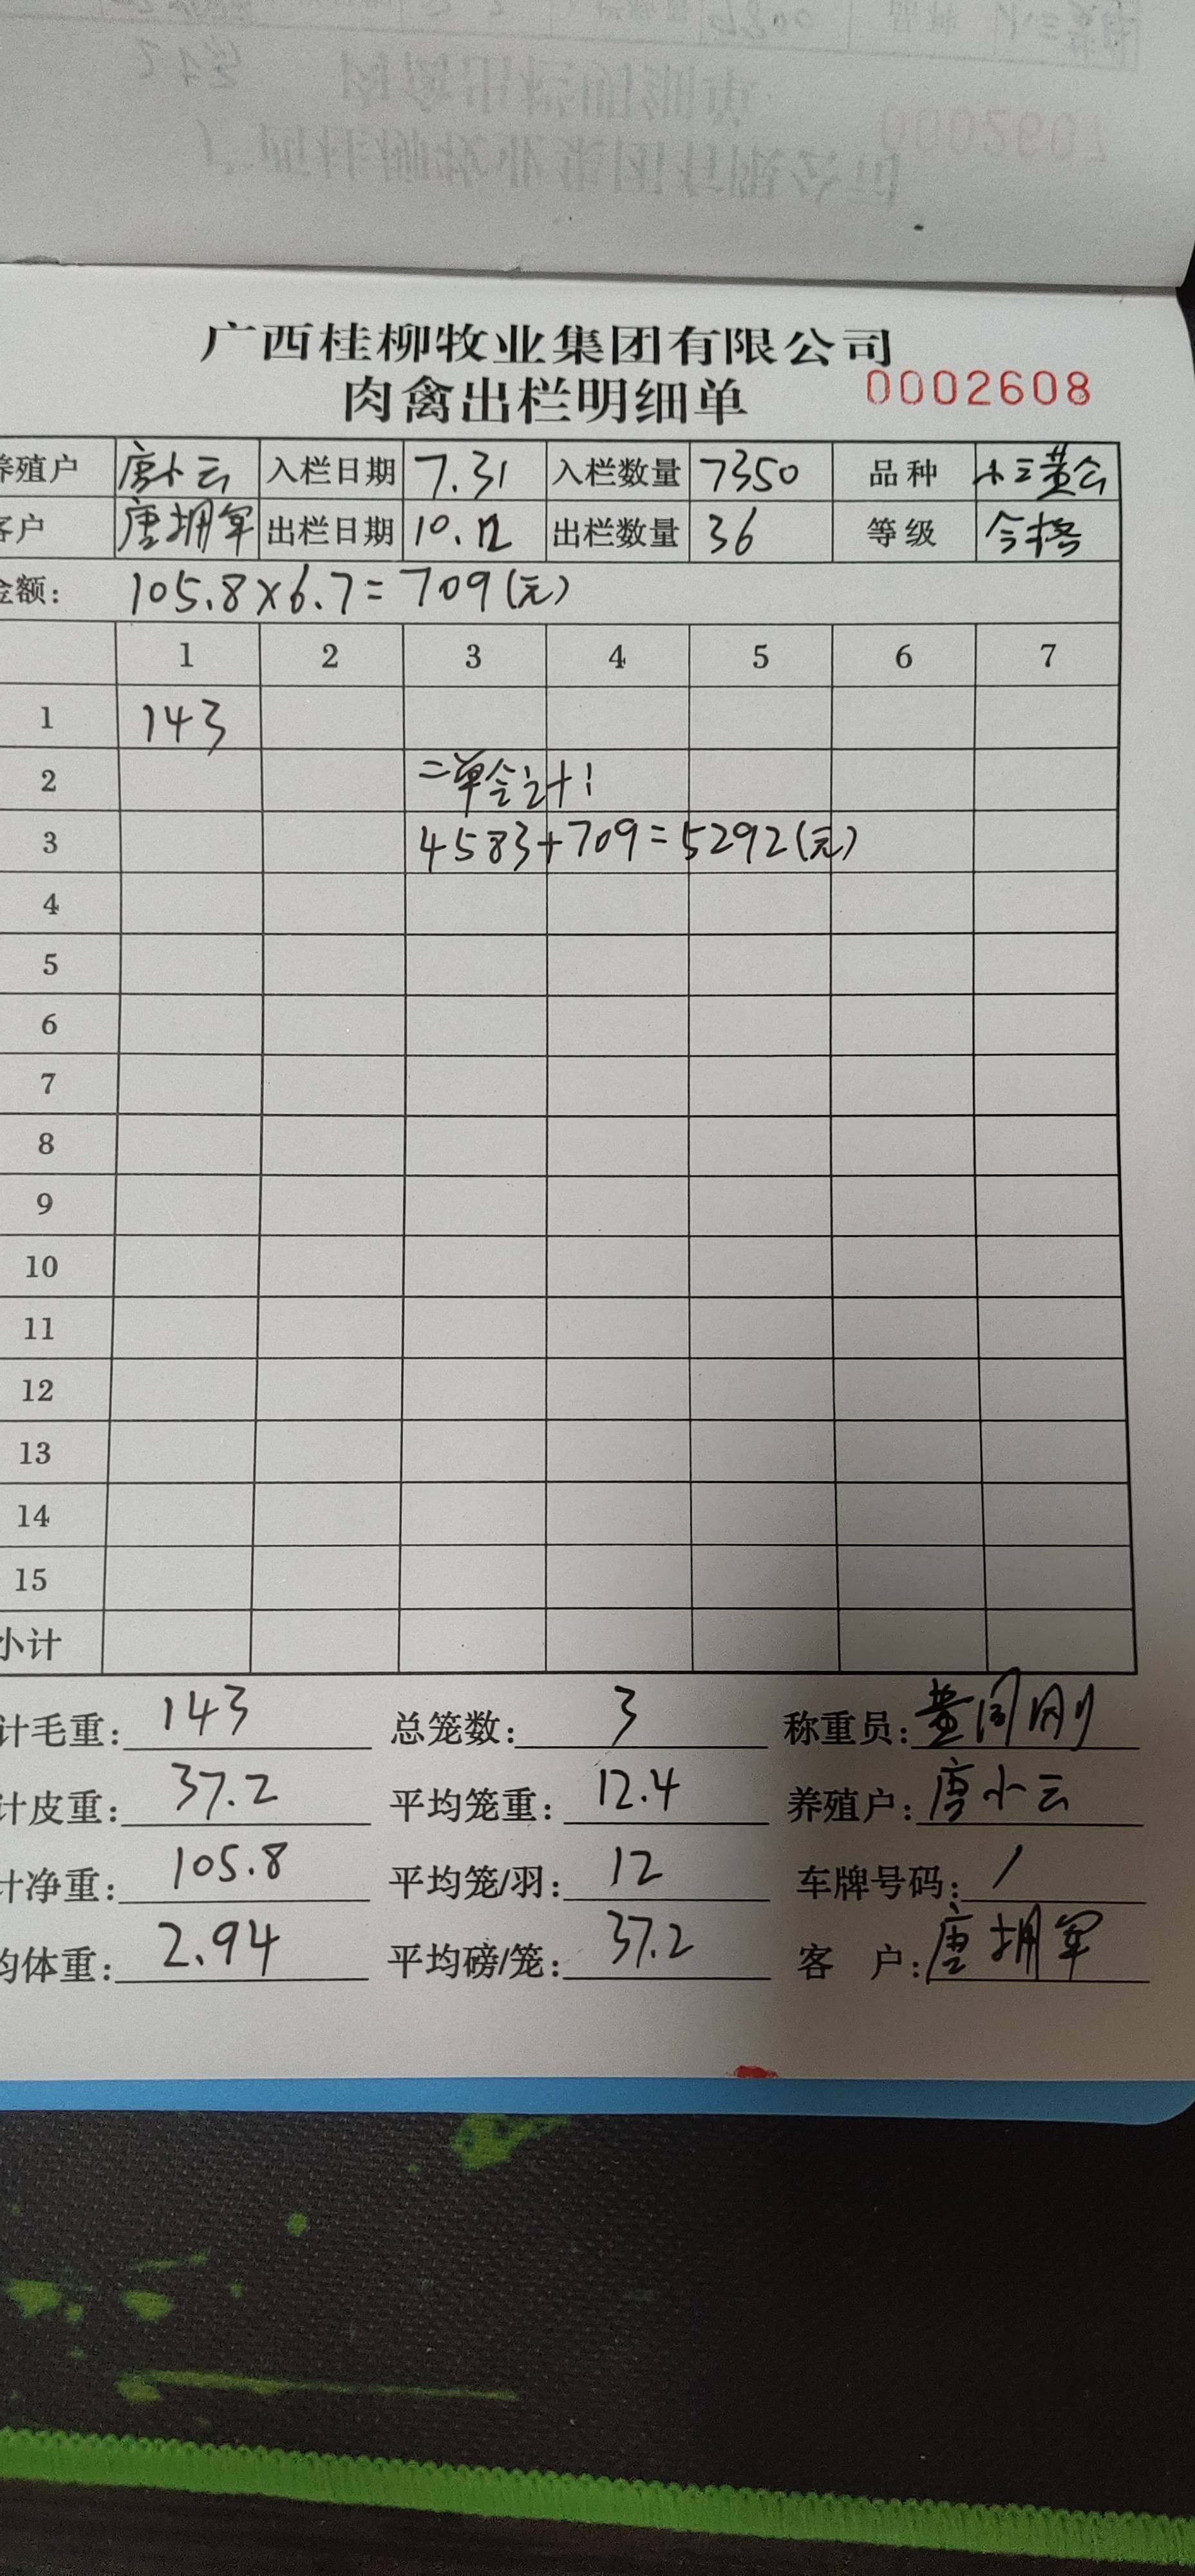 广西桂柳牧业集团有限公司
肉禽出栏明细单 0002608
养殖户 唐小云 入栏日期 7.31 入栏数量 7350 品种 小三黄公
客户 唐拥军 出栏日期 10.12 出栏数量 36 等级 合格
金额: 105.8×6.7=709(元)
1 2 3 4 5 6 7
1 143
2 二单合计:
3 4583+709=5292(元)
4
5
6
7
8
9
10
11
12
13
14
15
小计
计毛重: 143 总笼数: 3 称重员: 黄阎刚
计皮重: 37.2 平均笼重: 12.4 养殖户: 唐小云
计净重: 105.8 平均笼/羽: 12 车牌号码: /
均体重: 2.94 平均磅/笼: 37.2 客 户: 唐拥军